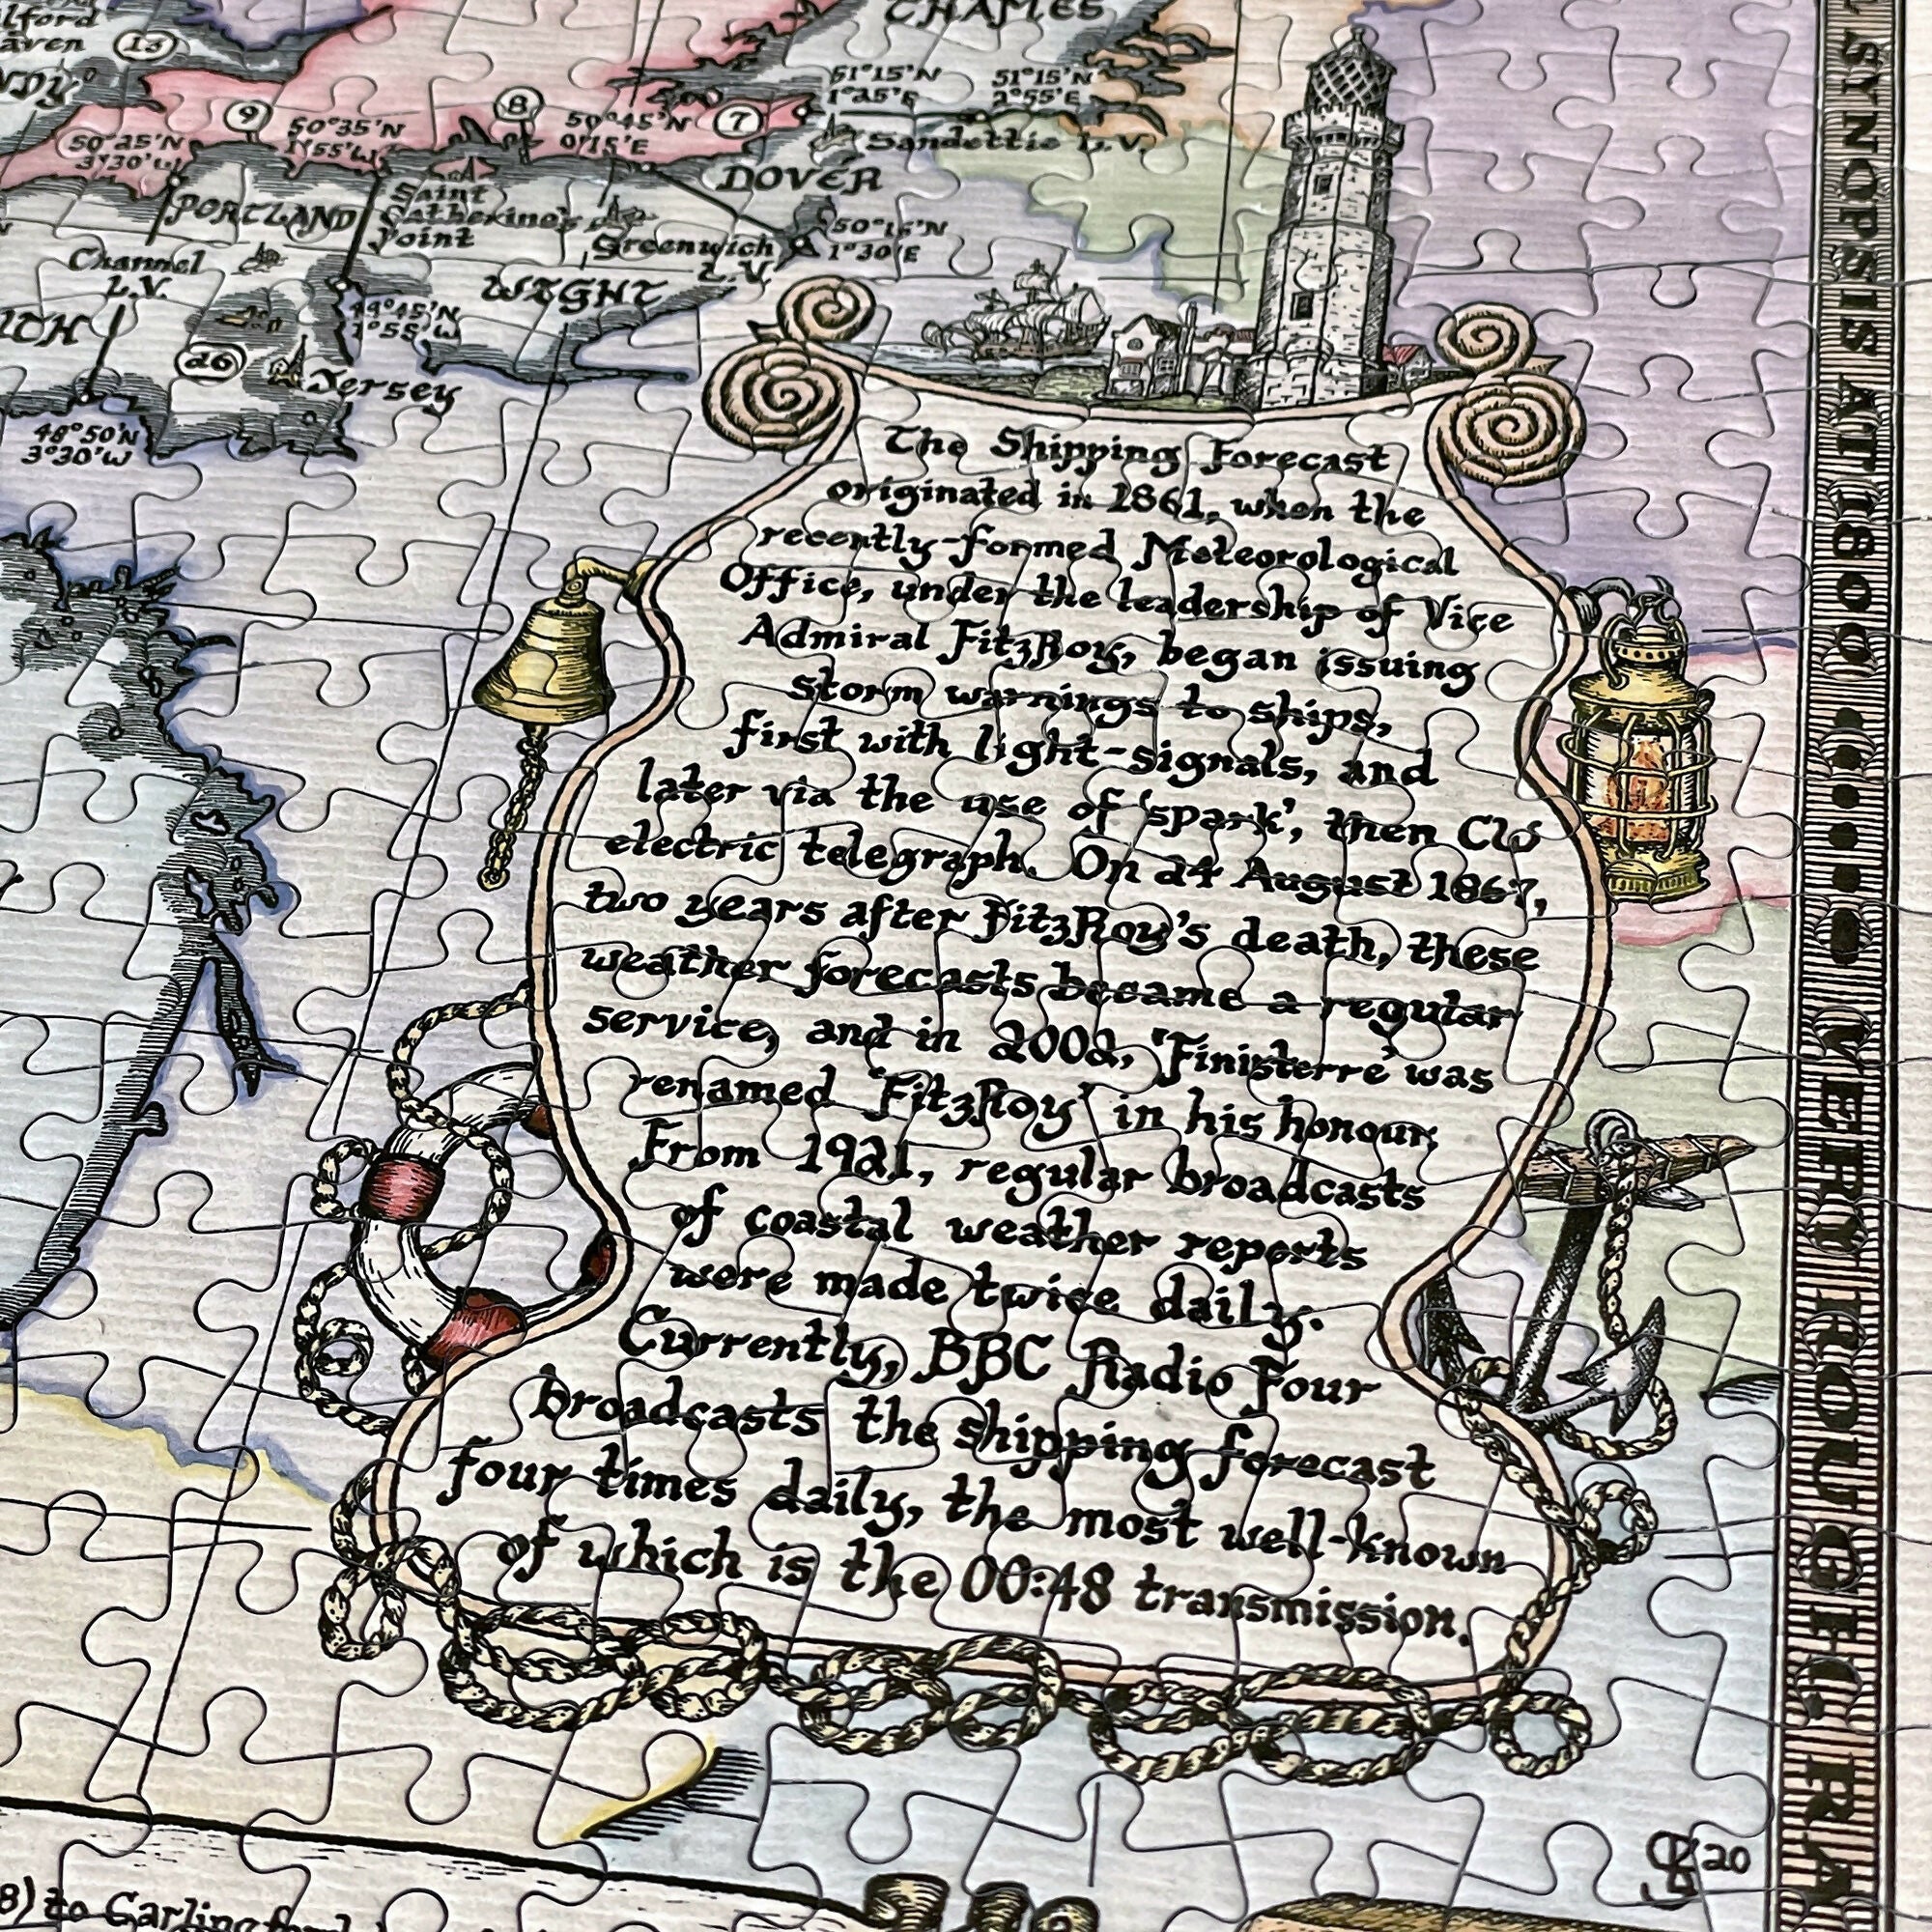 THAMES
13
51°15'N 51°15'N
1°25'E 2°55'E
9
8
7
50°25'N
3°30'W
50°35'N
1°55'W
50°45'N
0°15'E
Sandettie L.V.
DOVER
PORTLAND
Saint
Catherine's
Point
50°15'N
1°30'E
Greenwich
L.V.
Channel
L.V.
WIGHT
49°45'N
1°55'W
26
Jersey
48°50'N
3°30'W
The Shipping Forecast
originated in 1861, when the
recently-formed Meteorological
Office, under the leadership of Vice
Admiral FitzRoy, began issuing
storm warnings to ships,
first with light-signals, and
later via the use of 'spark', then CW
electric telegraph. On 24 August 1867,
two years after FitzRoy's death, these
weather forecasts became a regular
service, and in 2002, 'Finisterre' was
renamed 'FitzRoy' in his honour.
From 1921, regular broadcasts
of coastal weather reports
were made twice daily.
Currently, BBC Radio Four
broadcasts the shipping forecast
four times daily, the most well-known
of which is the 00:48 transmission.
20
8) to Carlingford
SYNOPSIS AT 1800 ••••• VERY ROUGH. RA